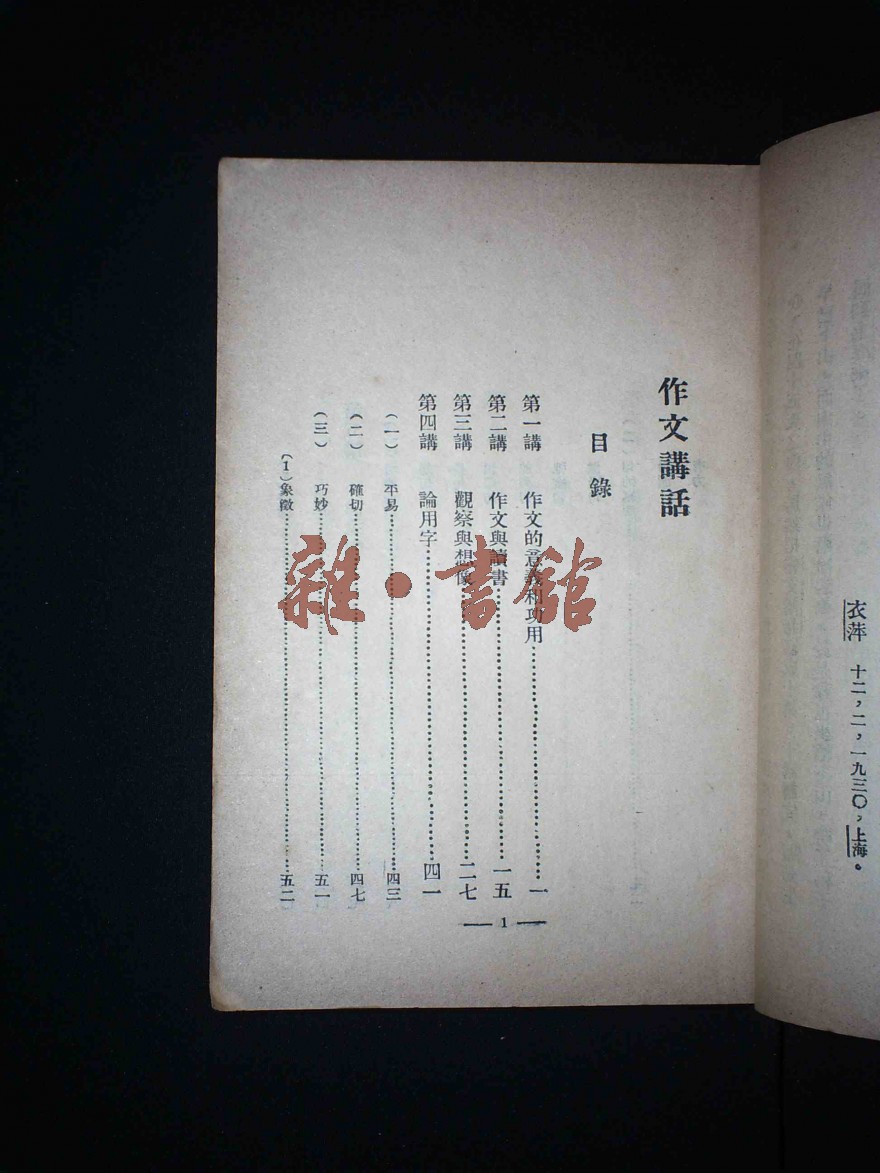 衣萍　十二，二，一九三〇，上海。
作文講話
目錄
第一講　作文的意義和功用……一
第二講　作文與讀書……一五
第三講　觀察與想像……二七
第四講　論用字……四一
（一）　平易……四三
（二）　確切……四七
（三）　巧妙……五一
（1）象徵……五二
— 1 —
雜·書館